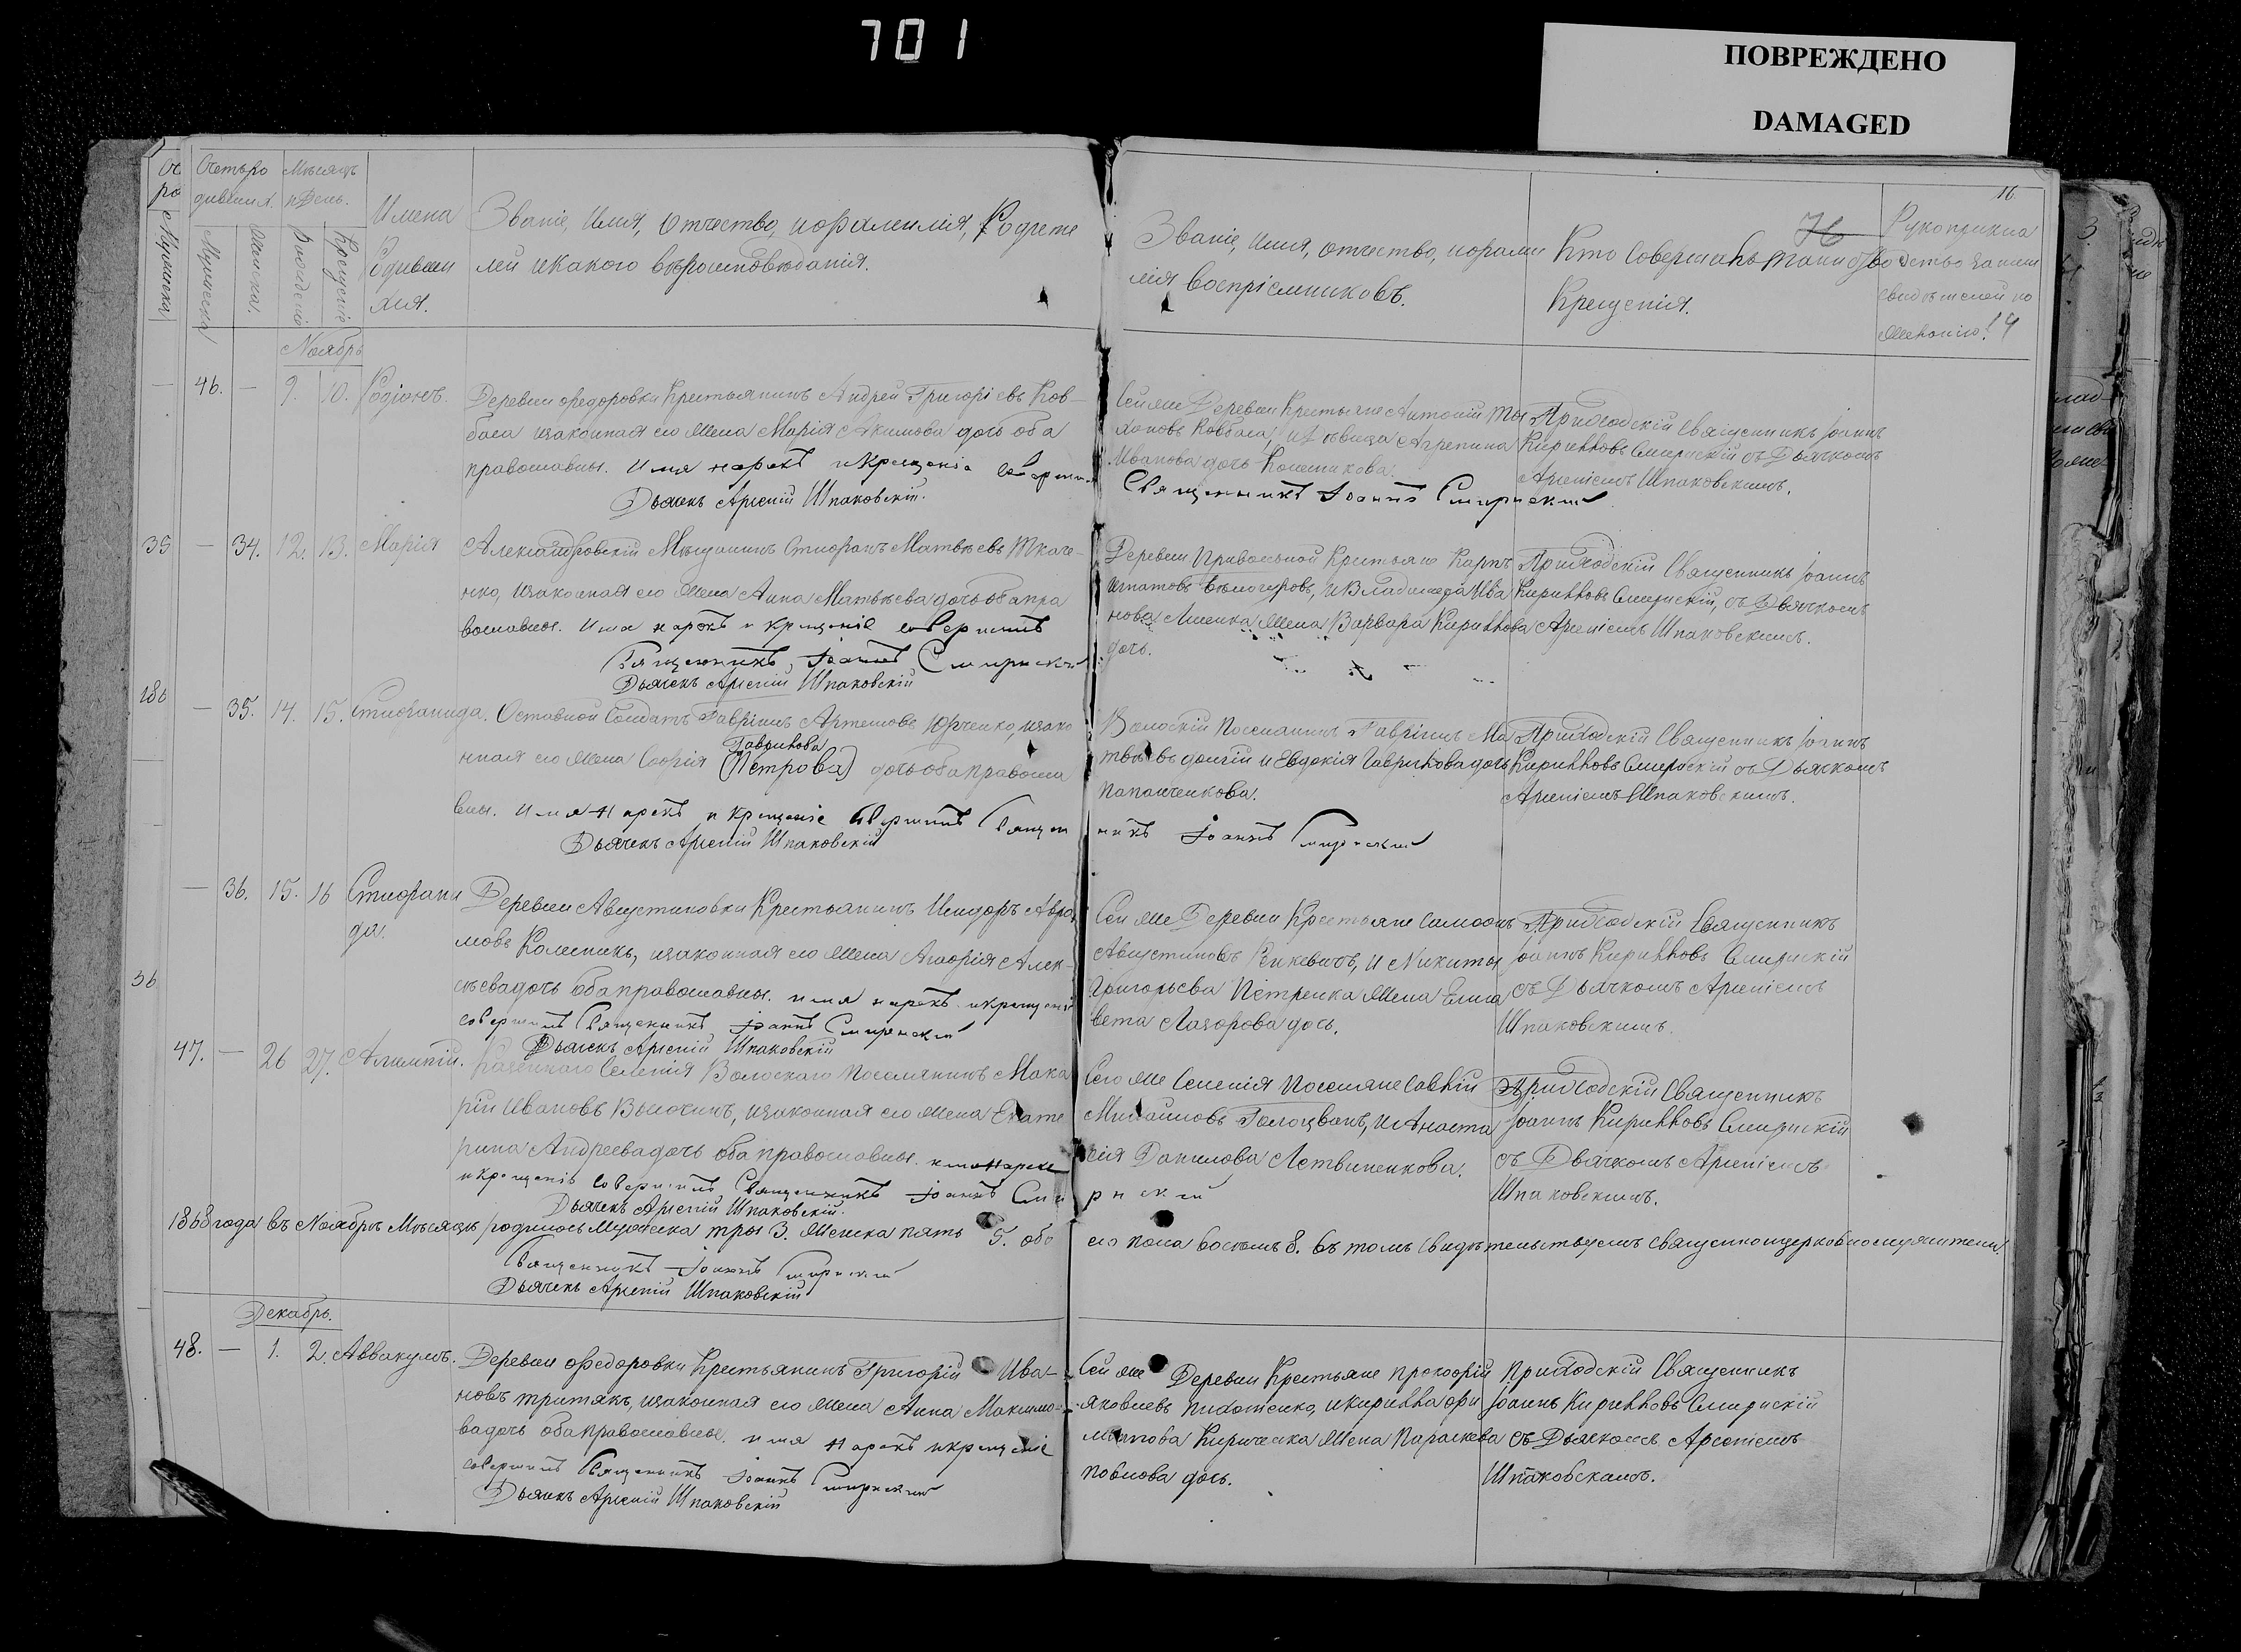 701
ПОВРЕЖДЕНО
DAMAGED
16.
Счетъ ро
дившихся.
Мѣсяцъ
и День.
Мужеска
Женска.
Рожденія
Крещенія
Имена
Родивши
хся.
Званіе, Имя, Отчество, и фамилія, Родите
лей и какого вѣроисповѣданія.
Званіе, Имя, Отчество, и фами
лія воспріемниковъ.
Кто совершалъ таинство
Крещенія.
Рукоприкла
дство записи
свидѣтелей по
желанію.
Ноябрь
46. — 9. 10. Родіонъ.
Деревни Федоровки Крестьянинъ Андрей Григорьевъ Ков-
баса и законная его жена Марія Акимова дочь оба
православны. Имя нарекъ и Крещеніе совершилъ
Дьячекъ Арсеній Шпаковскій.
Сей же Деревни Крестьяне Антоній
Ковбаса, и Дѣвица Агрепина
Иванова дочь
Священникъ Іоаннъ Смирнский
Приходскій Священникъ Іоаннъ
Кирилловъ Смирнскій съ Дьячкомъ
Арсеніемъ Шпаковскимъ.
35
— 34. 12. 13. Марія
Александровскій Мѣщанинъ Стефанъ Матвѣевъ Ткаче-
нко, и законная его жена Анна Матвѣева дочь оба пра
вославны. Имя нарекъ и крещеніе совершилъ
Священникъ Іоаннъ Смирнский
Дьячекъ Арсеній Шпаковскій
Деревни Привольной Крестьяне Карпъ
Игнатовъ и Владимера Ива
нова жена Варвара Кириллова
дочь.
Приходскій Священникъ Іоаннъ
Кирилловъ Смирнскій, съ Дьячкомъ
Арсеніемъ Шпаковскимъ.
186
— 35. 14. 15. Стефанида.
Отставной Солдатъ Гавріилъ Артемовъ Юрченко, и зако
Гаврилова
нная его жена Софія (Петрова) дочь оба правосла
вны. Имя нарекъ и крещеніе совершилъ Священ
Дьячекъ Арсеній Шпаковскій
Волоскій Поселянинъ Гавріилъ Ма
твѣевъ и Евдокія Гаврилова дочь
никъ Іоаннъ Смирнский
Приходскій Священникъ Іоаннъ
Кирилловъ Смирнскій съ Дьячкомъ
Арсеніемъ Шпаковскимъ.
— 36. 15. 16 Стефани
да.
Деревни Августиновки Крестьянинъ Исидоръ Авра
мовъ Колесникъ, и законная его жена Агафія Алек-
сѣева дочь оба православны. имя нарекъ и крещеніе
совершилъ Священникъ Іоаннъ Смирнский
Дьячекъ Арсеній Шпаковскій
Сей же Деревни Крестьяне Самсонъ
Августиновъ и Никиты
Григорьева Петренка жена Елиса
вета Лазарова дочь.
Приходскій Священникъ
Іоаннъ Кирилловъ Смирнскій
съ Дьячкомъ Арсеніемъ
Шпаковскимъ.
36
47. — 26 27. Алимпій.
Селенія Волоскаго Поселянинъ Мака
рій Ивановъ и законная его жена Екате
рина Андреева дочь оба православны. имя нарекъ
и крещеніе совершилъ Священникъ Іоаннъ Сми
Дьячекъ Арсеній Шпаковскій.
Сего же Селенія Поселяне Савній
Михаиловъ Голоцванъ, и Анаста
сія Данилова Летвиненкова.
рнский
Приходскій Священникъ
Іоаннъ Кирилловъ Смирнскій
съ Дьячкомъ Арсеніемъ
Шпаковскимъ.
1868 года въ Ноябрѣ Мѣсяцѣ родилось Мужеска три 3. Женска пять 5. обо
его пола восемь 8. въ томъ свидѣтельствуемъ священноцерковнослужители.
Священникъ Іоаннъ Смирнский
Дьячекъ Арсеній Шпаковскій
Декабрь.
48. — 1. 2. Аввакумъ.
Деревни Федоровки Крестьянинъ Григорій Ива-
новъ Третякъ, и законная его жена Анна Максимо-
ва дочь оба православны. имя нарекъ и крещеніе
совершилъ Священникъ Іоаннъ Смирнский
Дьячекъ Арсеній Шпаковскій
Сей же Деревни Крестьяне Прокофій
Яковлевъ и Кирилла Фи
липова Кириченка жена Параскева
Павлова дочь.
Приходскій Священникъ
Іоаннъ Кирилловъ Смирнскій
съ Дьячкомъ Арсеніемъ
Шпаковскимъ.